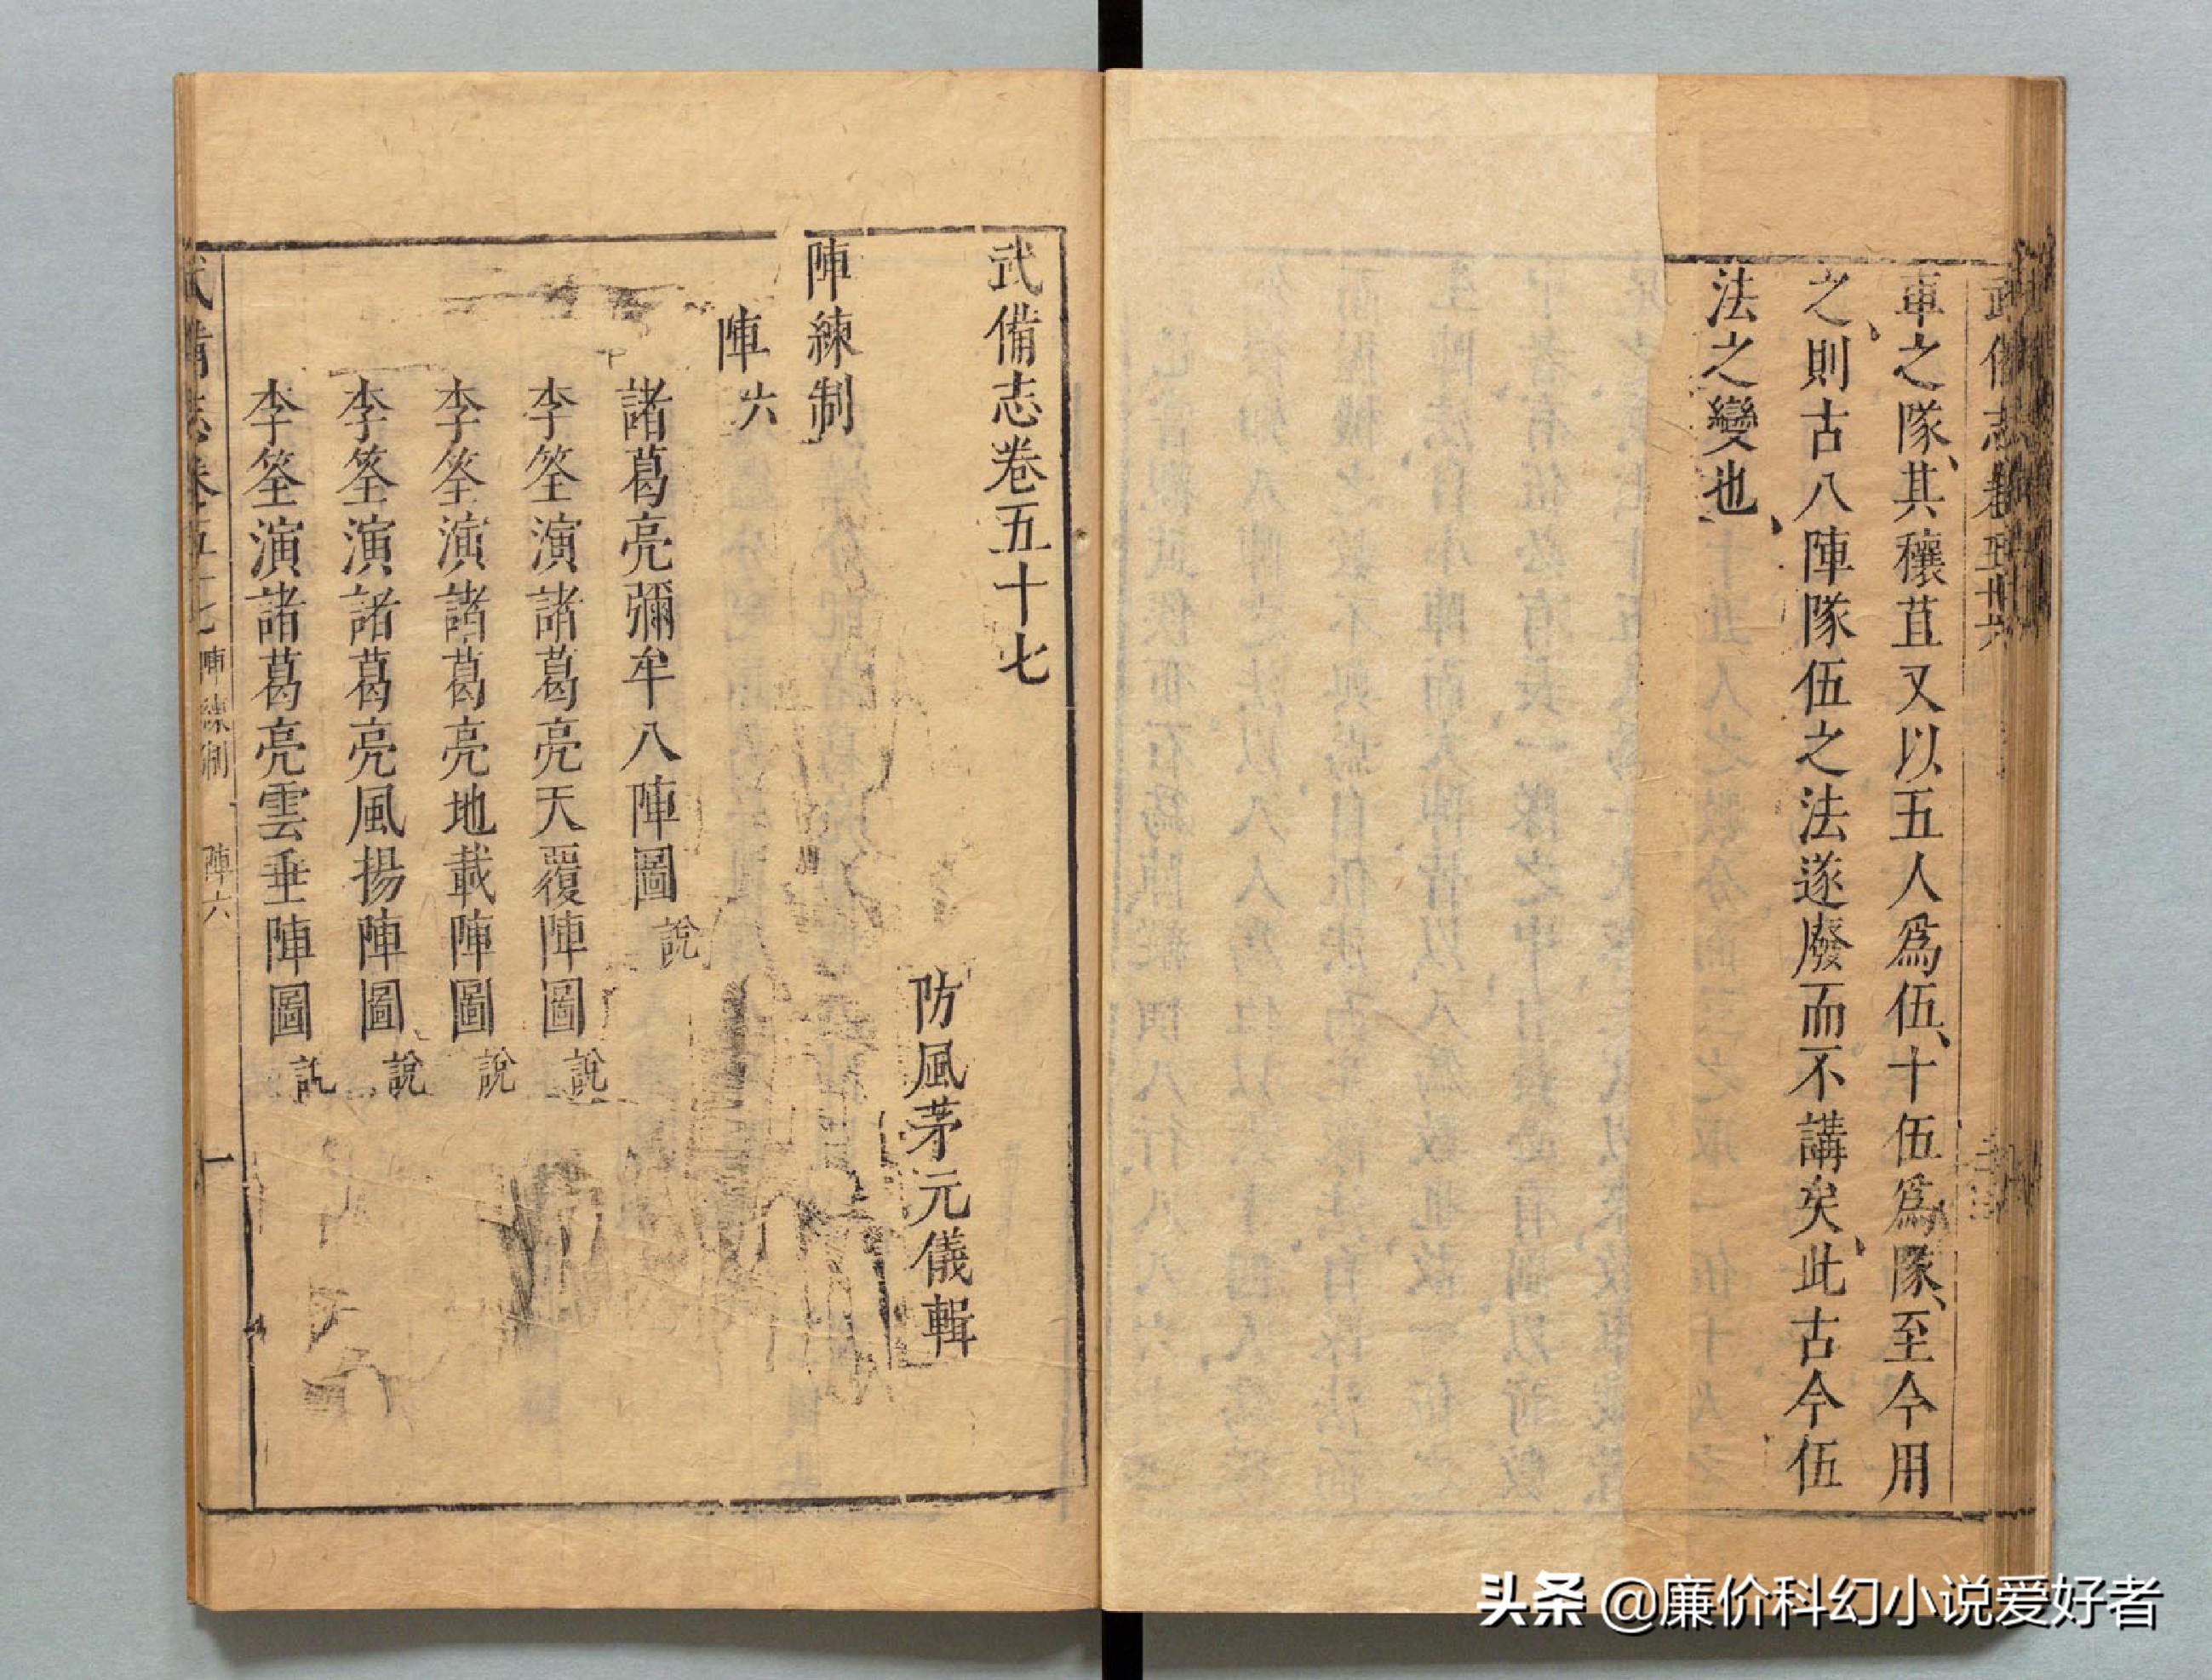 武備志卷五十六
車之隊其穰苴又以五人爲伍十伍爲隊至今用
之則古八陣隊伍之法遂廢而不講矣此古今伍
法之變也
武備志卷五十七
防風茅元儀輯
陣練制
陣六
諸葛亮彌牟八陣圖 說
李筌演諸葛亮天覆陣圖 說
李筌演諸葛亮地載陣圖 說
李筌演諸葛亮風揚陣圖 說
李筌演諸葛亮雲垂陣圖 說
武備志卷五十七 陣練制 陣六 一
头条 @廉价科幻小说爱好者